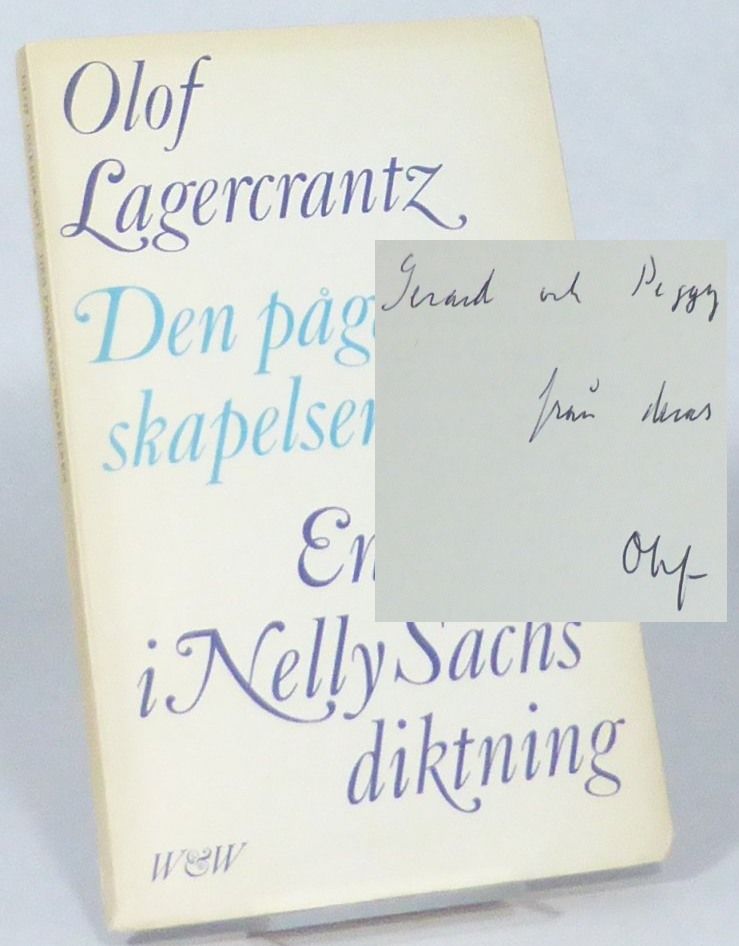 Olof
Lagercrantz
Den påg
skapelsen
En
i Nelly Sachs
diktning
W&W
Gerard och Peggy
från deras
Olof